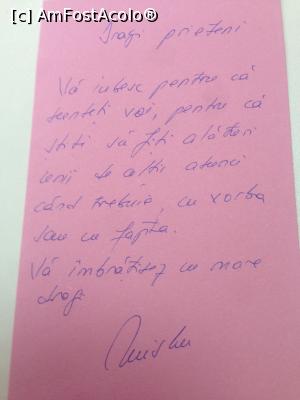 [c] AmFostAcolo®
Dragi prieteni
Vă iubesc pentru că
sunteți voi, pentru că
știți să fiți alături
unii de alții atunci
când trebuie, cu vorba
sau cu fapta.
Vă îmbrățișez cu mare
drag